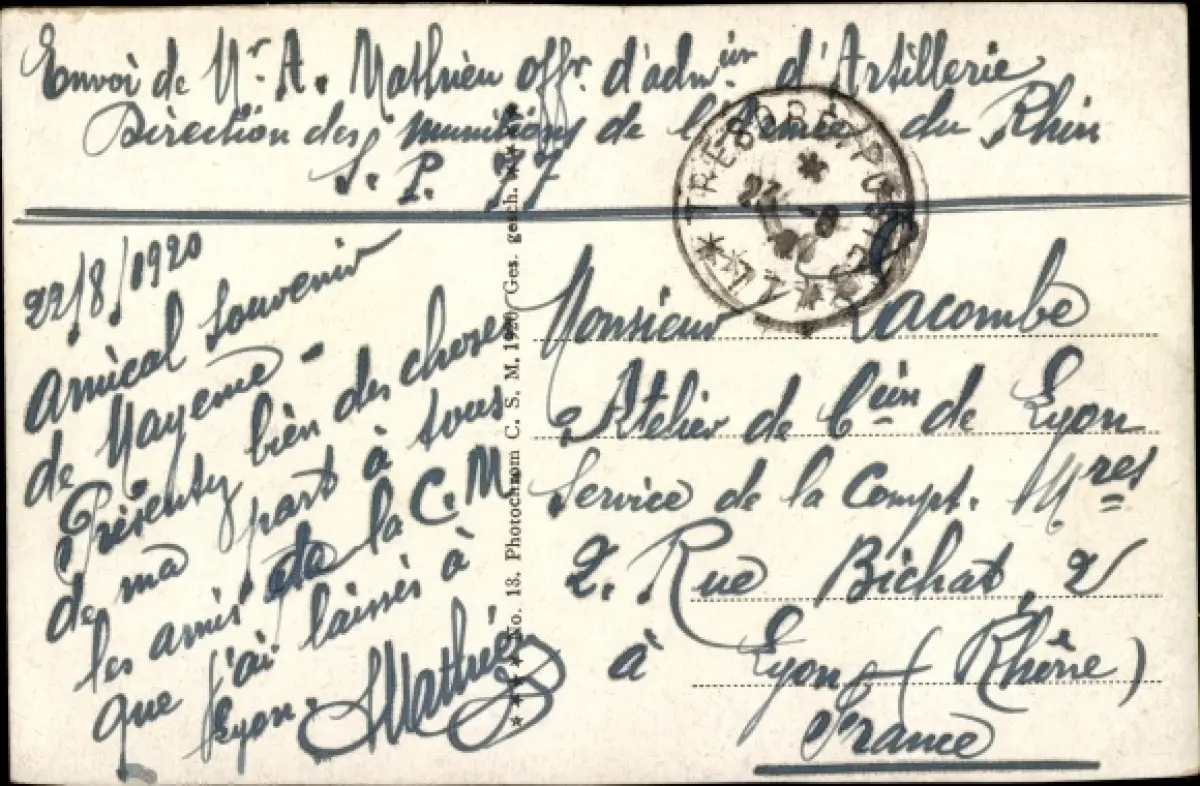 Envoi de Mr. A. Mathieu offr. d'admon d'Artillerie
Direction des munitions de l'Armée du Rhin
S. P. 77
TRESOR ET POSTES
22/8/1920
Amical souvenir
de Mayence -
Présentez bien des choses
de ma part à tous
les amis de la C. M
que j'ai laissés à
Lyon.
Mathieu
No. 13. Photochrom C. S. M. 1920 Ges. gesch.
Monsieur Lacombe
Atelier de Con de Lyon
Service de la Compt. Mres
2. Rue Bichat, 2
à Lyon - (Rhône)
France